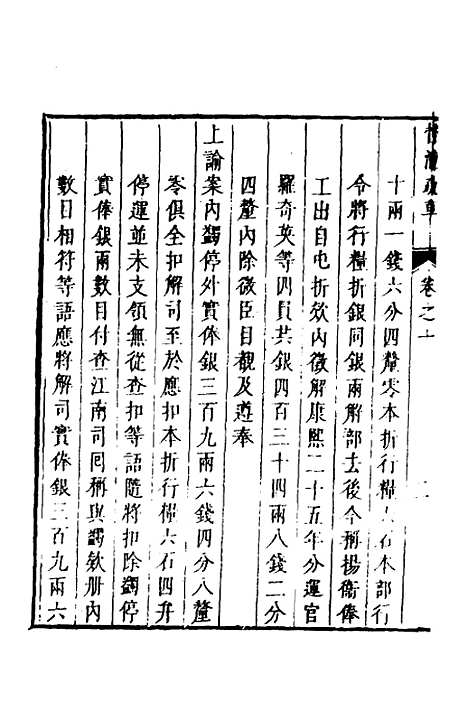 卷之十
十兩一錢六分四釐零本折行糧六石本部行
令將行糧折銀同銀兩解部去後今稱揚衞俸
工出自屯折欸內徵解康熙二十五年分運官
羅奇英等四員共銀四百三十四兩八錢二分
四釐內除徵臣目觀及遵奉
上諭案內蠲停外實俸銀三百九兩六錢四分八釐
零俱全扣解司至於應扣本折行糧六石四斗
停運並未支領無從查扣等語隨將扣除蠲停
實俸銀兩數目付查江南司囘稱與蠲欸册內
數目相符等語應將解司實俸銀三百九兩六